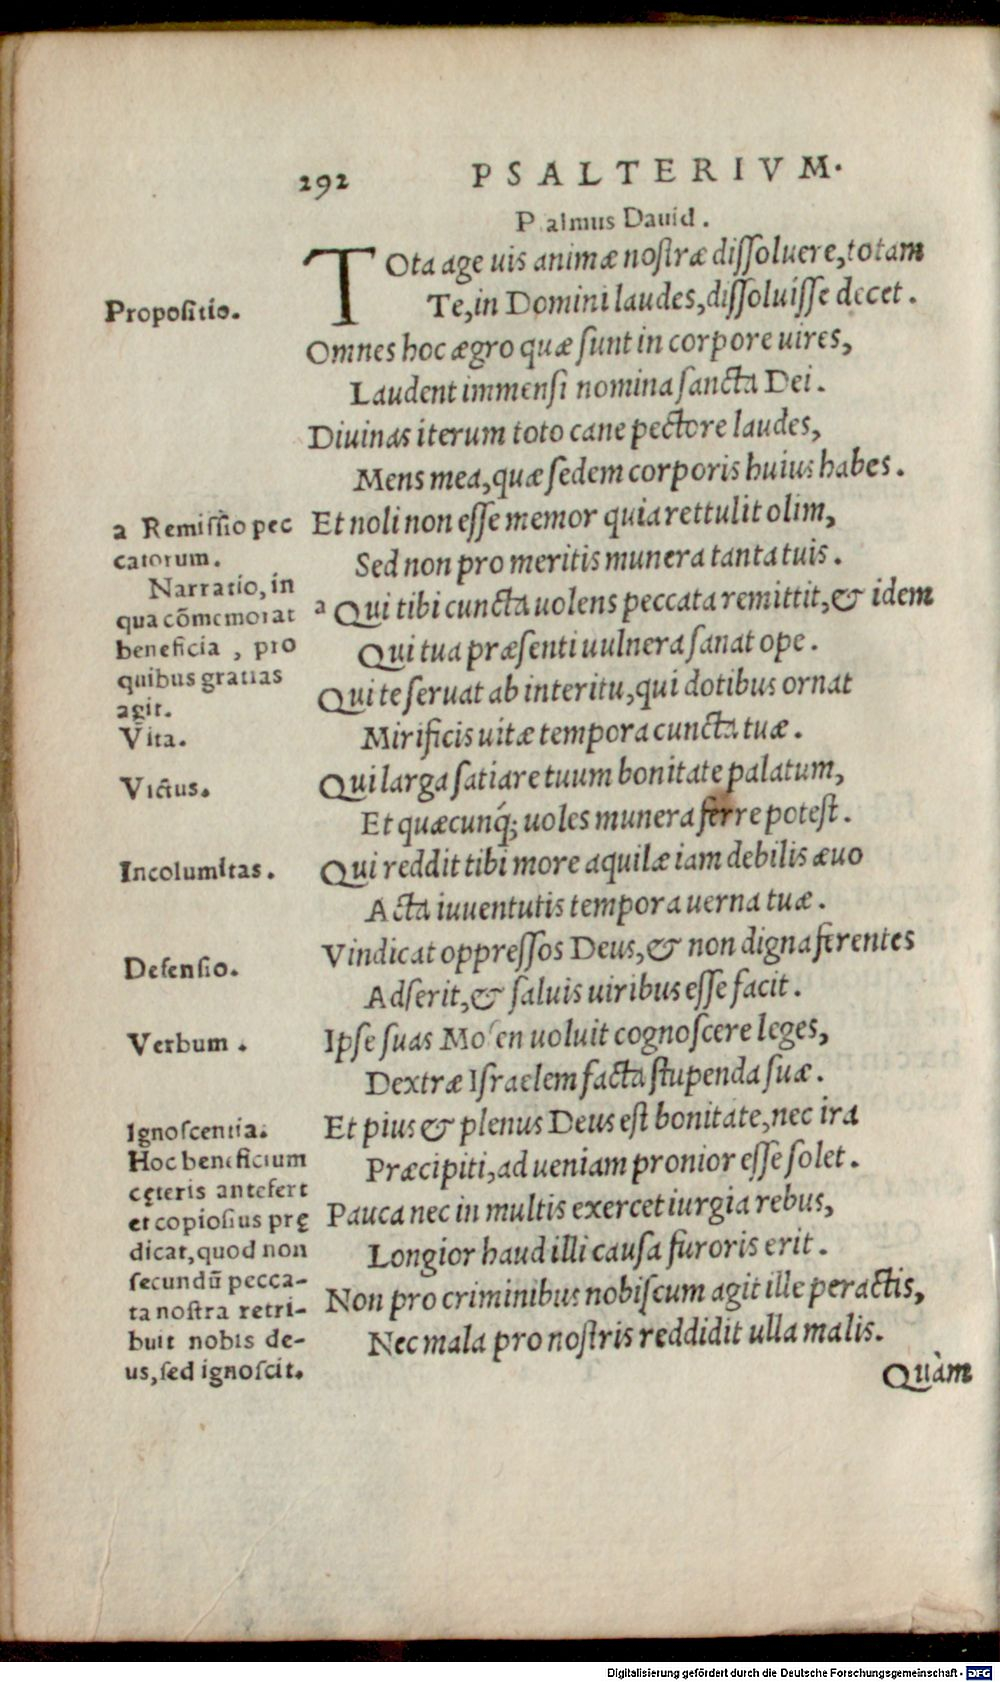 292 PSALTERIVM.
P almus Dauid.
TOta age uis animæ nostræ dissoluere, totam
Propositio.
Te, in Domini laudes, dissoluisse decet.
Omnes hoc ægro quæ sunt in corpore uires,
Laudent immensi nomina sancta Dei.
Diuinas iterum toto cane pectore laudes,
Mens mea, quæ sedem corporis huius habes.
a Remissio pec
catorum.
Et noli non esse memor quia rettulit olim,
Sed non pro meritis munera tanta tuis.
Narratio, in
qua cõmemorat
beneficia, pro
quibus gratias
agit.
a Qui tibi cuncta uolens peccata remittit, & idem
Qui tua præsenti uulnera sanat ope.
Qui te seruat ab interitu, qui dotibus ornat
Vita.
Mirificis uitæ tempora cuncta tuæ.
Victus.
Qui larga satiare tuum bonitate palatum,
Et quæcunq; uoles munera ferre potest.
Incolumitas.
Qui reddit tibi more aquilæ iam debilis æuo
Acta iuuentutis tempora uerna tuæ.
Defensio.
Vindicat oppressos Deus, & non digna ferentes
Adserit, & saluis uiribus esse facit.
Verbum.
Ipse suas Mosen uoluit cognoscere leges,
Dextræ Israelem facta stupenda suæ.
Ignoscentia.
Hoc beneficium
cęteris antefert
et copiosius prę
dicat, quod non
secundũ pecca-
ta nostra retri-
buit nobis de-
us, sed ignoscit.
Et pius & plenus Deus est bonitate, nec ira
Præcipiti, ad ueniam pronior esse solet.
Pauca nec in multis exercet iurgia rebus,
Longior haud illi causa furoris erit.
Non pro criminibus nobiscum agit ille peractis,
Nec mala pro nostris reddidit ulla malis.
Quàm
Digitalisierung gefördert durch die Deutsche Forschungsgemeinschaft - DFG